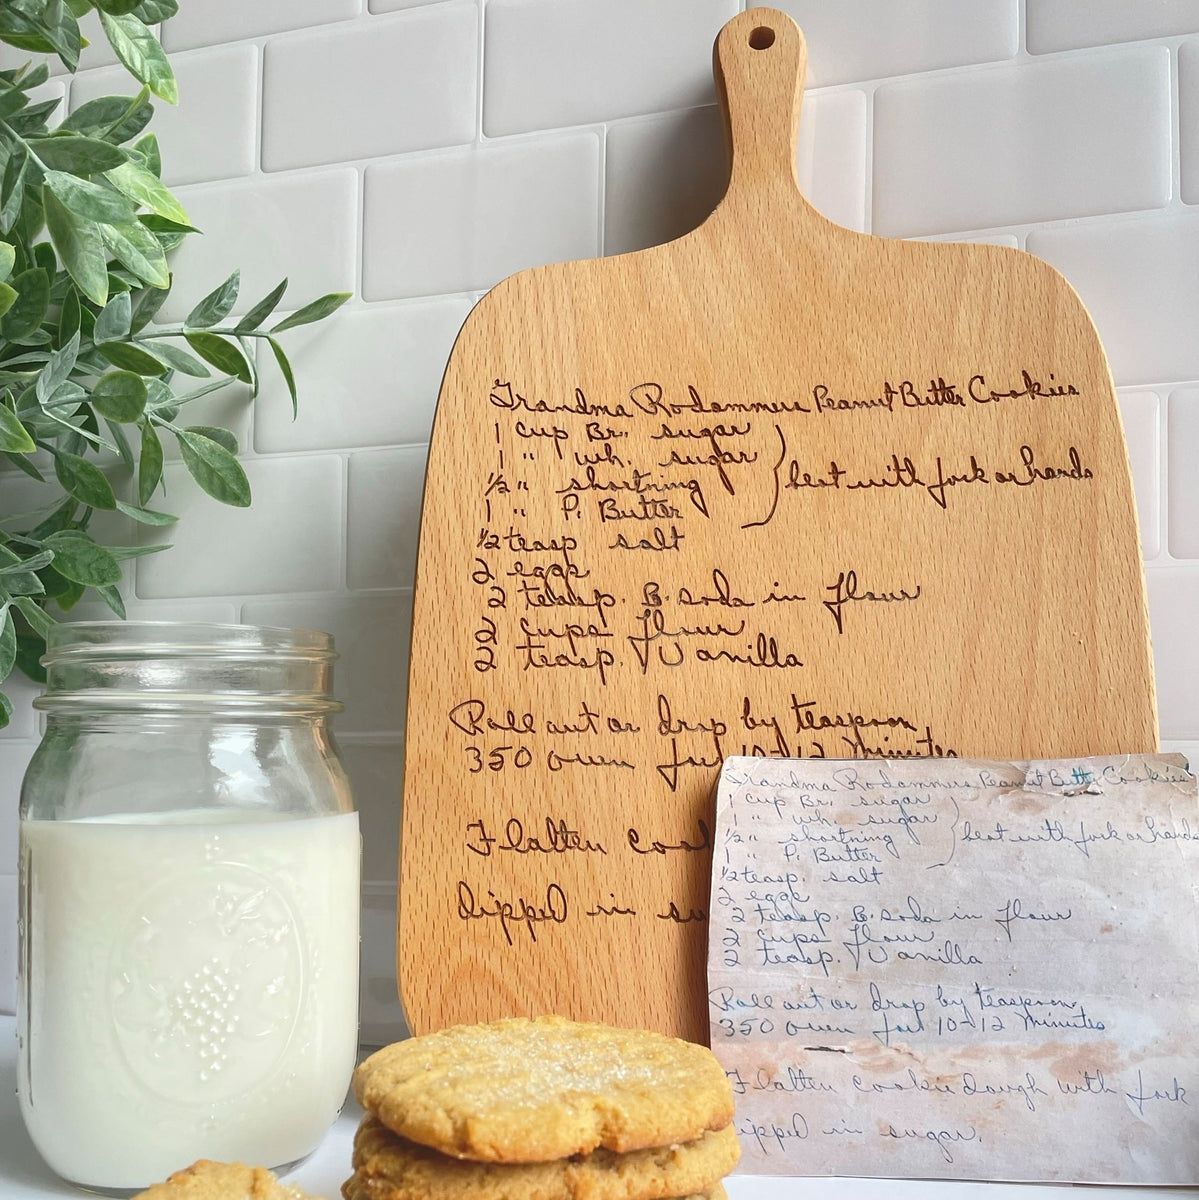 Grandma Rodammers Peanut Butter Cookies
1 cup Br. sugar
1 " wh. sugar
1/2 " shortning
1 " P. Butter
beat with fork or hands
1/2 teasp salt
2 eggs
2 teasp. B. soda in flour
2 cups flour
2 teasp. Vanilla
Roll out or drop by teaspoon
350 oven for 10-12 minutes
Flatten
dipped in
Grandma Rodammers Peanut Butter Cookies
1 cup Br. sugar
1 " wh. sugar
1/2 " shortning
1 " P. Butter
beat with fork or hands
1/2 teasp. salt
2 eggs
2 teasp. B. soda in flour
2 cups flour
2 teasp. Vanilla
Roll out or drop by teaspoon
350 oven for 10-12 minutes
Flatten cookie dough with fork
dipped in sugar.